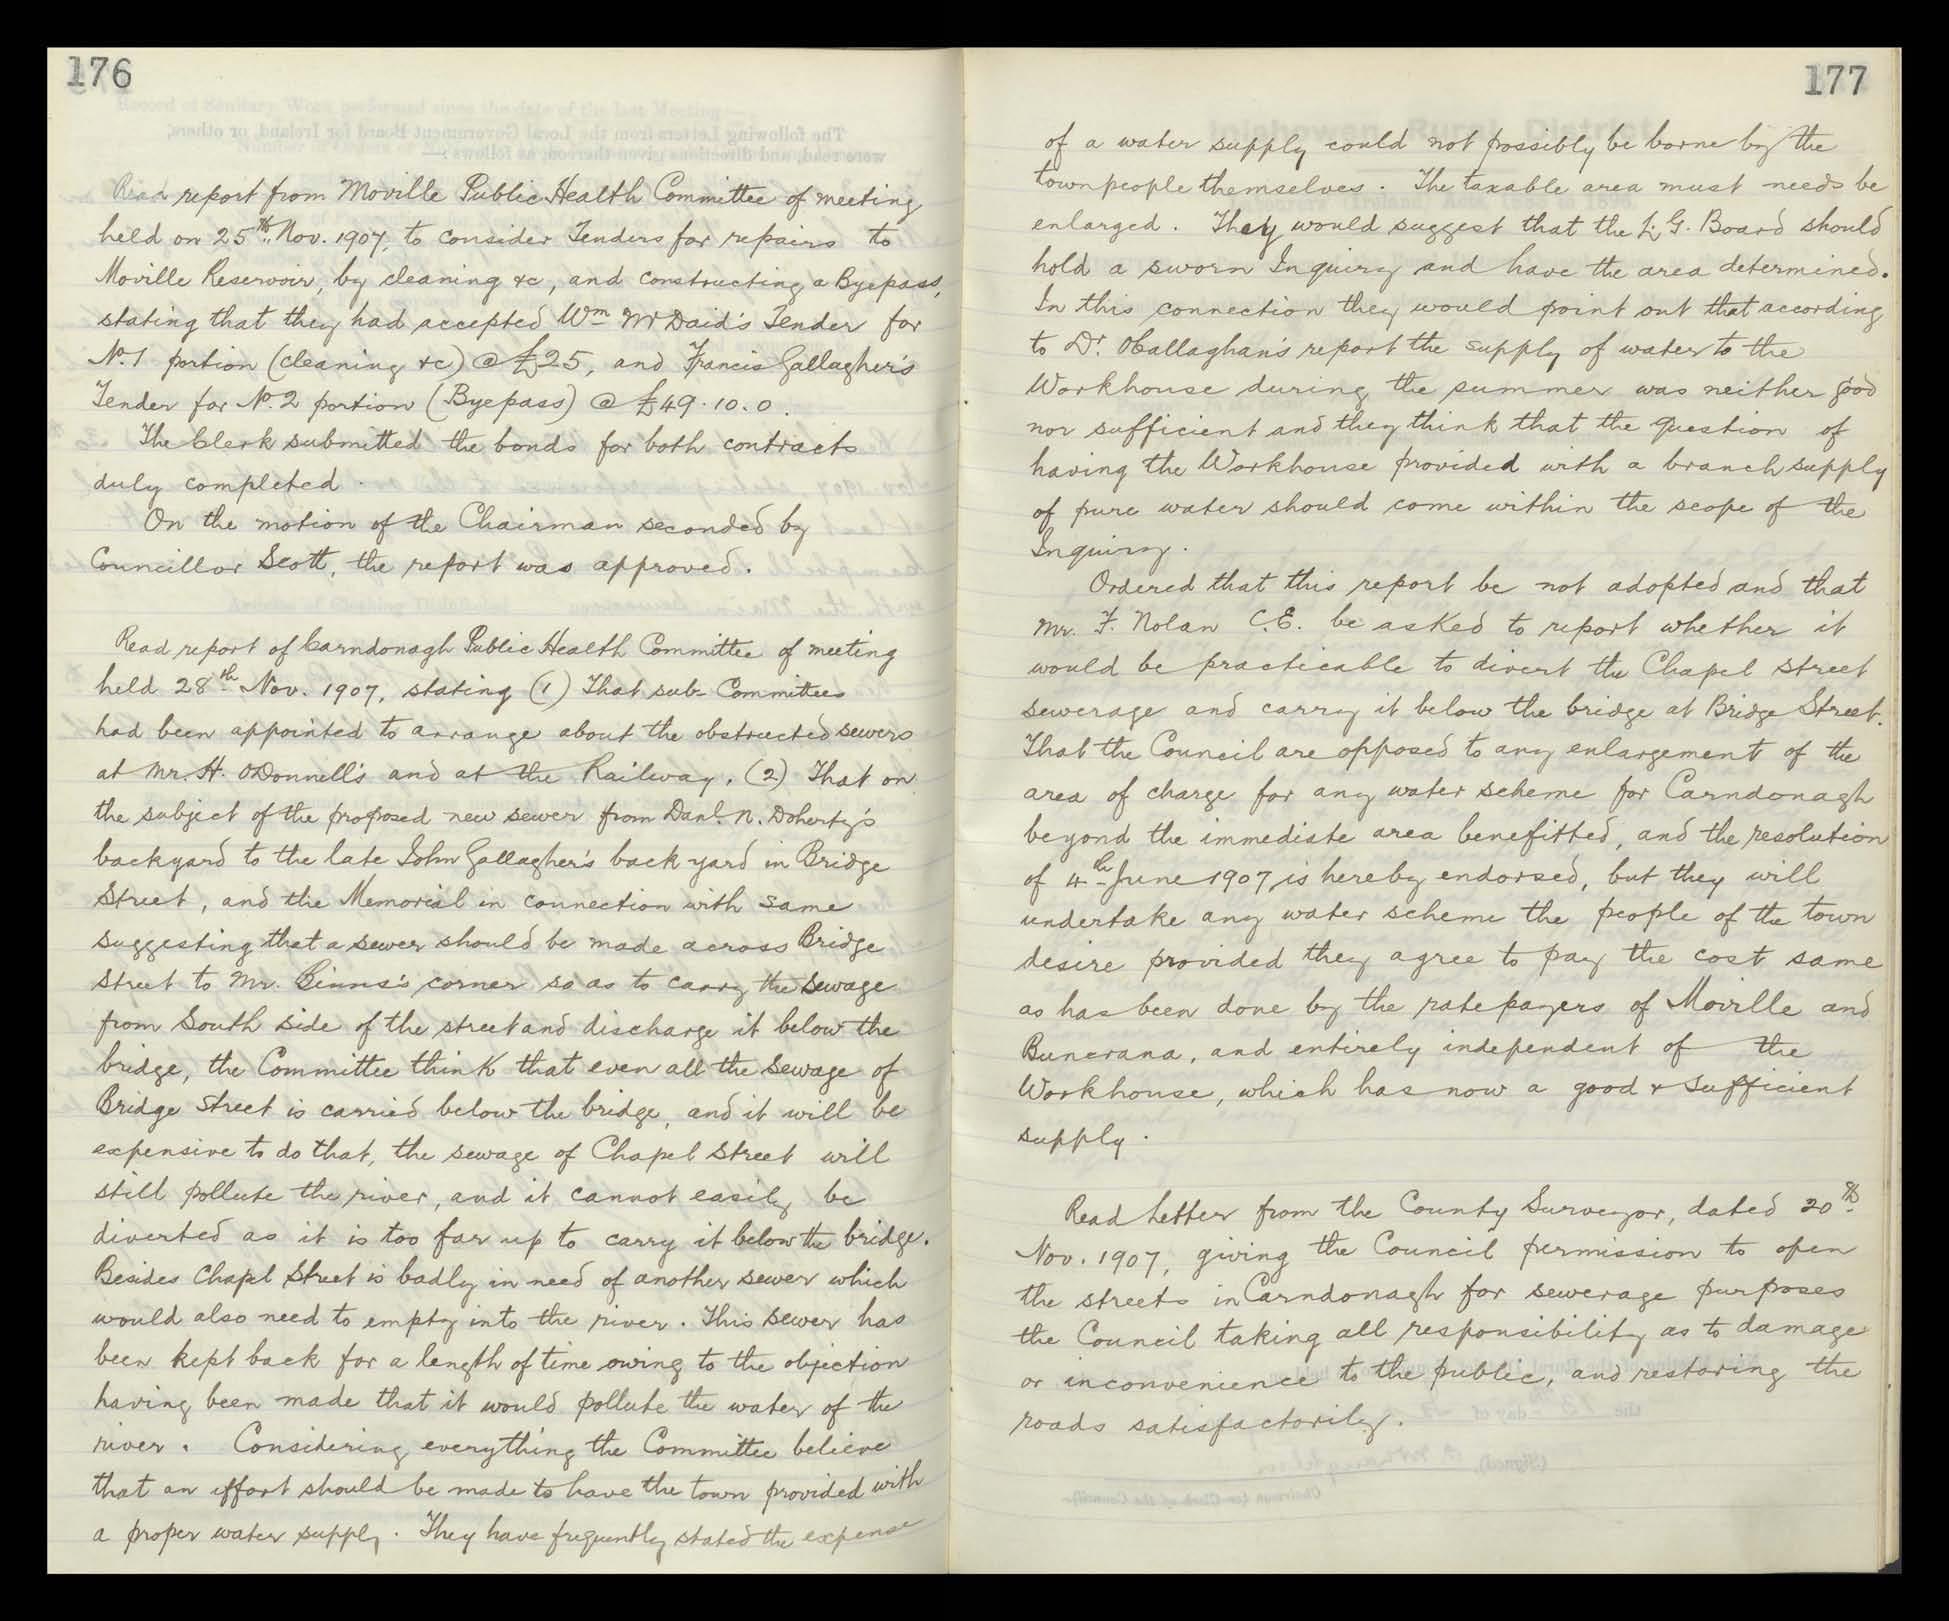 176
Read report from Moville Public Health Committee of meeting
held on 25th Nov. 1907, to consider Tenders for repairs to
Moville Reservoir, by cleaning &c, and constructing a Byepass,
stating that they had accepted Wm McDaid's Tender for
No. 1 portion (cleaning &c) @ £25, and Francis Gallagher's
Tender for No. 2 portion (Byepass) @ £49.10.0.
The Clerk submitted the bonds for both contracts
duly completed.
On the motion of the Chairman seconded by
Councillor Scott, the report was approved.
Read report of Carndonagh Public Health Committee of meeting
held 28th Nov. 1907, stating (1) That sub-Committees
had been appointed to arrange about the obstructed sewers
at Mr. H. O'Donnell's and at the Railway. (2) That on
the subject of the proposed new sewer from Danl. N. Doherty's
backyard to the late John Gallagher's back yard in Bridge
Street, and the Memorial in connection with same
suggesting that a sewer should be made across Bridge
Street to Mr. Binns's corner so as to carry the sewage
from South side of the street and discharge it below the
bridge, the Committee think that even all the sewage of
Bridge Street is carried below the bridge, and it will be
expensive to do that, the sewage of Chapel Street will
still pollute the river, and it cannot easily be
diverted as it is too far up to carry it below the bridge.
Besides Chapel Street is badly in need of another sewer which
would also need to empty into the river. This sewer has
been kept back for a length of time owing to the objection
having been made that it would pollute the water of the
river. Considering everything the Committee believe
that an effort should be made to have the town provided with
a proper water supply. They have frequently stated the expense
177
of a water supply could not possibly be borne by the
townpeople themselves. The taxable area must needs be
enlarged. They would suggest that the L. G. Board should
hold a sworn Inquiry and have the area determined.
In this connection they would point out that according
to Dr. O'Callaghan's report the supply of water to the
Workhouse during the summer was neither good
nor sufficient and they think that the question of
having the Workhouse provided with a branch supply
of pure water should come within the scope of the
Inquiry.
Ordered that this report be not adopted and that
Mr. F. Nolan C.E. be asked to report whether it
would be practicable to divert the Chapel Street
sewerage and carry it below the bridge at Bridge Street.
That the Council are opposed to any enlargement of the
area of charge for any water scheme for Carndonagh
beyond the immediate area benefitted, and the resolution
of 4th June 1907 is hereby endorsed, but they will
undertake any water scheme the people of the town
desire provided they agree to pay the cost same
as has been done by the ratepayers of Moville and
Buncrana, and entirely independent of the
Workhouse, which has now a good & sufficient
supply.
Read letter from the County Surveyor, dated 20th
Nov. 1907, giving the Council permission to open
the streets in Carndonagh for sewerage purposes
the Council taking all responsibility as to damage
or inconvenience to the public, and restoring the
roads satisfactorily.